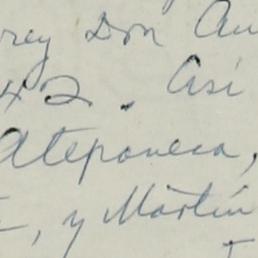 rey Don An
42. Así
Atepaneca,
, y Martín